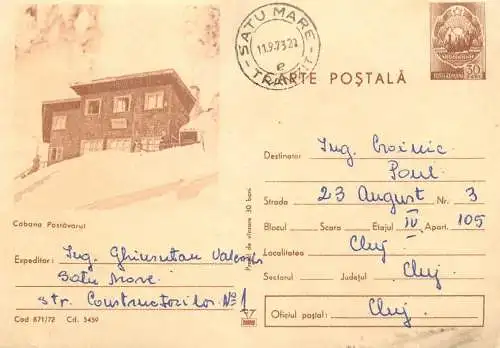 SATU MARE
11.9.73.22
e
TRANZIT
CARTE POŞTALĂ
POSTA ROMANA
50
BANI
Cabana Postăvarul
Destinatar Ing. Croinic
Paul
Strada 23 August Nr. 3
Blocul Scara Etajul IV Apart. 105
Localitatea Cluj
Sectorul Judeţul Cluj
Oficiul poştal: Cluj
Expeditor: Ing. Ghiurutan
Satu Mare
str. Constructorilor No 1
Preţul de vînzare 30 bani
Cod 871/72 Cd. 5459